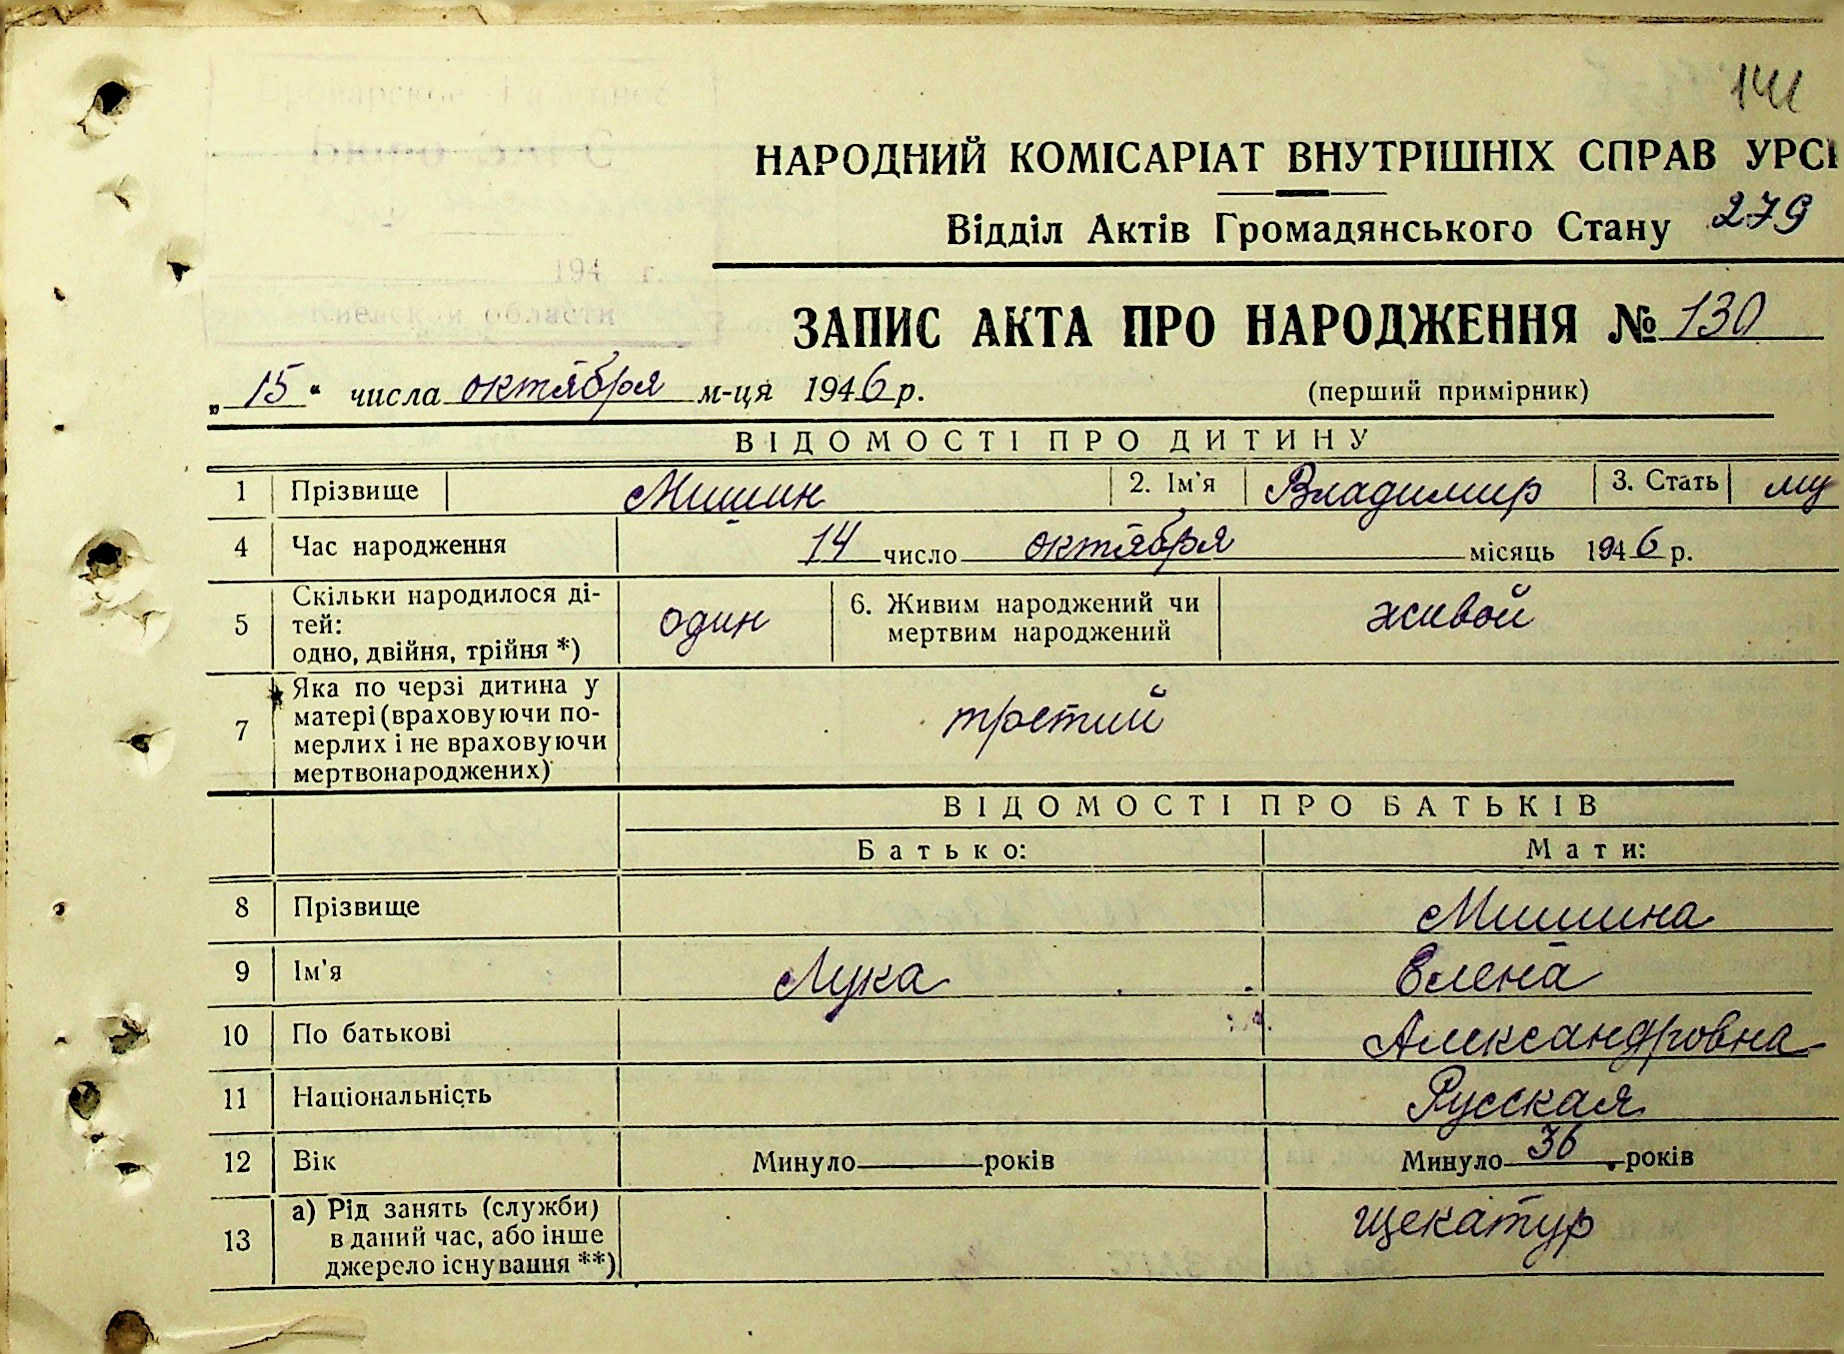 141
НАРОДНИЙ КОМІСАРІАТ ВНУТРІШНІХ СПРАВ УРСР
Відділ Актів Громадянського Стану 279
ЗАПИС АКТА ПРО НАРОДЖЕННЯ № 130
„15“ числа октября м-ця 1946 р. (перший примірник)
ВІДОМОСТІ ПРО ДИТИНУ
1 Прізвище Мишин 2. Ім'я Владимир 3. Стать му
4 Час народження 14 число октября місяць 1946 р.
5 Скільки народилося ді-
тей:
одно, двійня, трійня *) один 6. Живим народжений чи
мертвим народжений живой
7 Яка по черзі дитина у
матері (враховуючи по-
мерлих і не враховуючи
мертвонароджених) третий
ВІДОМОСТІ ПРО БАТЬКІВ
Батько: Мати:
8 Прізвище Мишина
9 Ім'я Лука Елена
10 По батькові Александровна
11 Національність Русская
12 Вік Минуло років Минуло 36 років
13 а) Рід занять (служби)
в даний час, або інше
джерело існування **) щекатур
194 г.
Киевской области